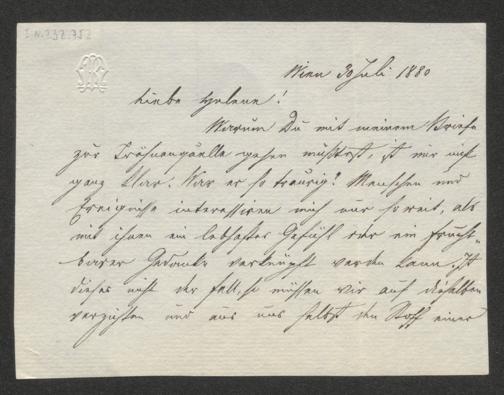 I.N. 232.752
Wien 30 Juli 1880
Liebe Helene!
Warum Du mit meinem Briefe
zur Thränenquelle gehen mußtest, ist mir nicht
ganz klar. War er so traurig? Menschen und
Ereignisse interessiren mich nur so weit, als
mit ihnen ein lebhaftes Gefühl oder ein frucht-
barer Gedanke verknüpft werden kann. Ist
dieses nicht der Fall, so müssen wir auf dieselben
verzichten und aus uns selbst den Stoff einer